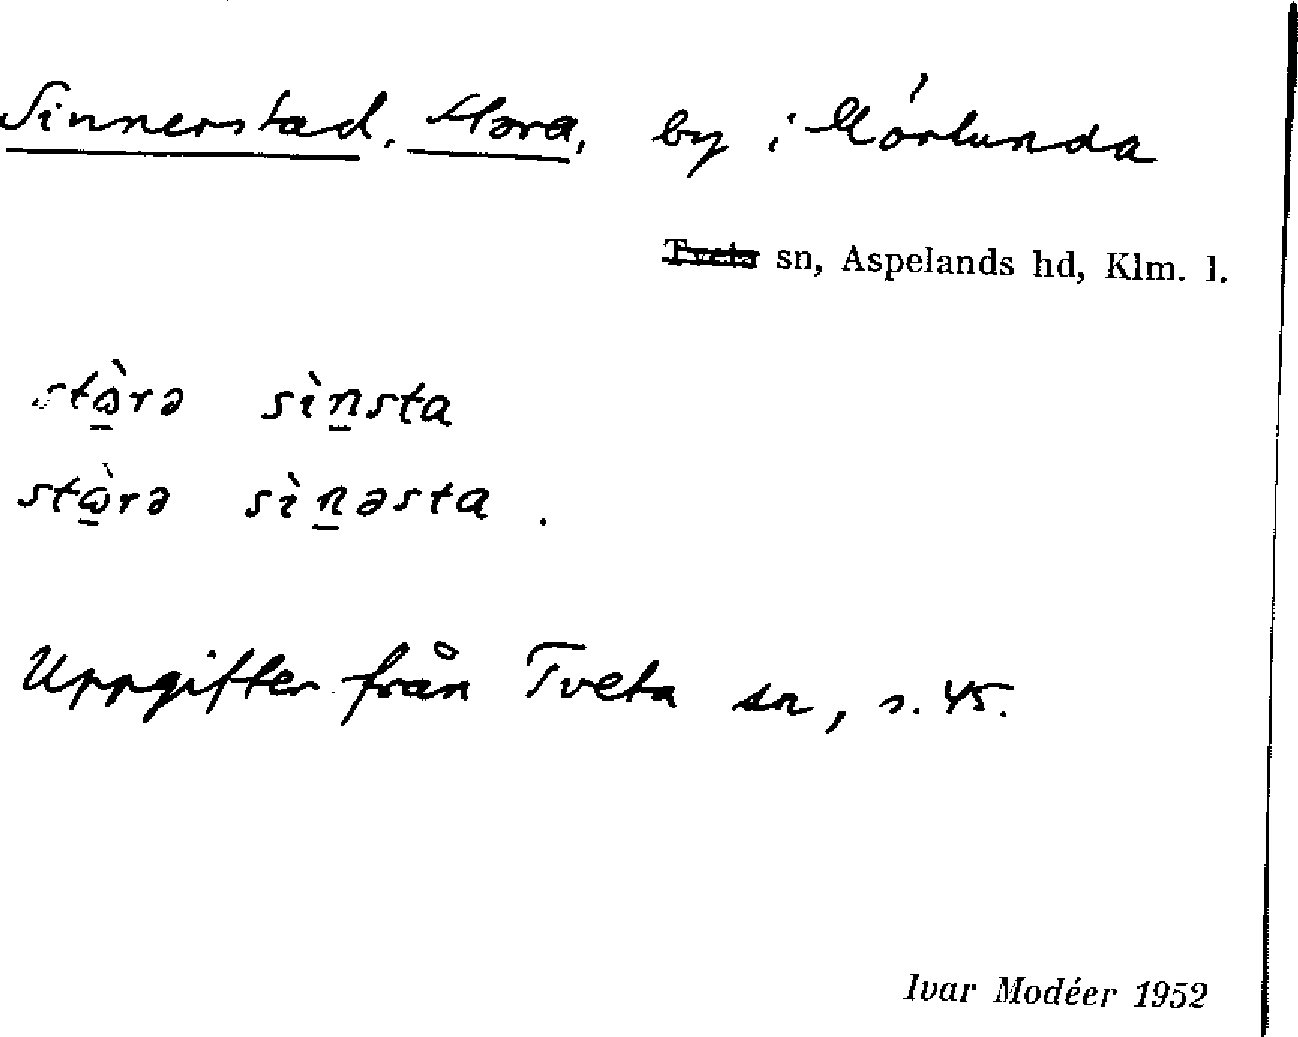 Sinnerstad, Stora, by i Mörlunda
Tveta sn, Aspelands hd, Klm. l.
stὼ̲rə sìn̲sta
stὼ̲rə sìn̲əsta.
Uppgifter från Tveta sn, s. 45.
Ivar Modéer 1952